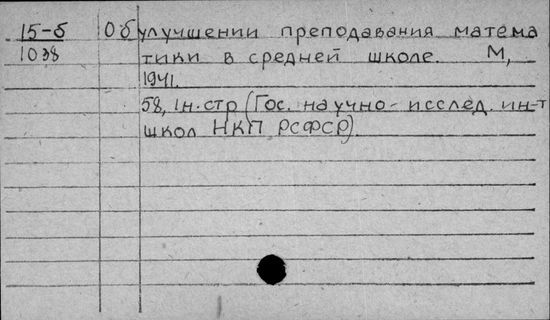 15-б Об улучшении преподавания матема
1038 тики в средней школе. М,
1941.
58, 1н. стр (Гос. научно-исслед. ин-т
школ НКП РСФСР).